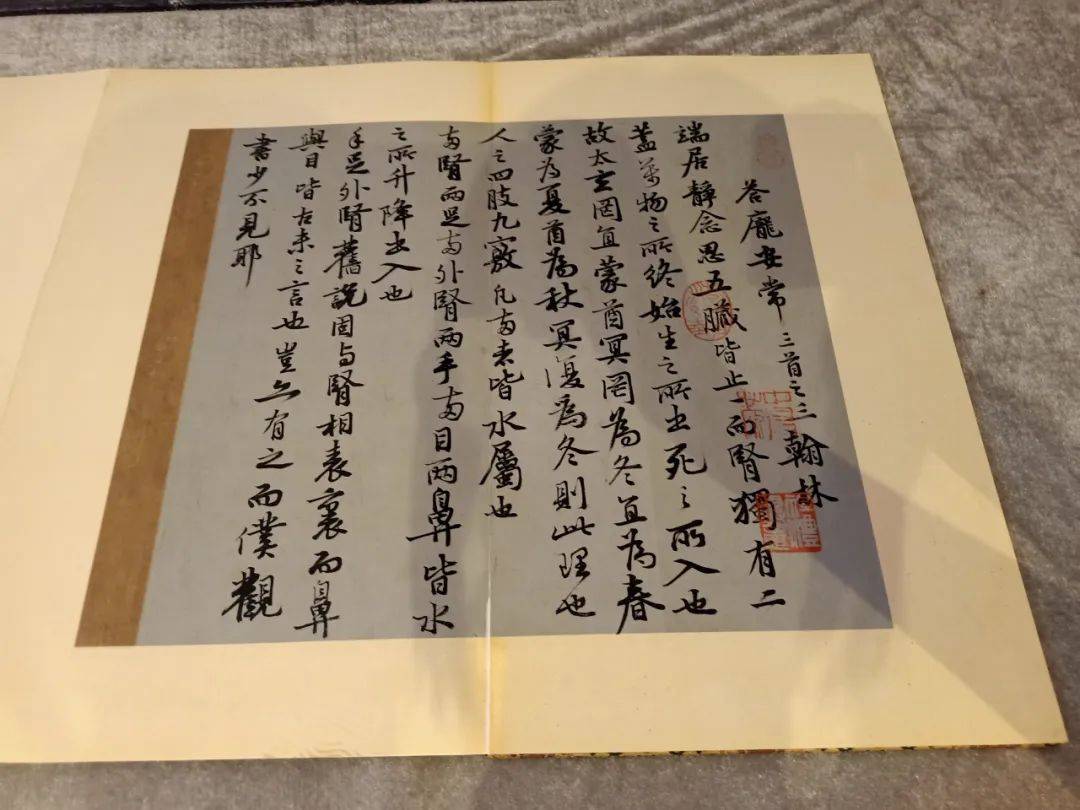 荅龐安常三首之三翰林
端居靜念思五臟皆止一而腎獨有二
蓋萬物之所終始生之所出死之所入也
故太玄罔直蒙酋冥罔為冬直為春
蒙為夏酋為秋冥復為冬則此理也
人之四肢九竅凡兩者皆水屬也
兩腎兩足兩外腎兩手兩目兩鼻皆水
之所升降出入也
手足外腎舊說固与腎相表裏而鼻
與目皆古未之言也豈亦有之而僕觀
書少不見耶